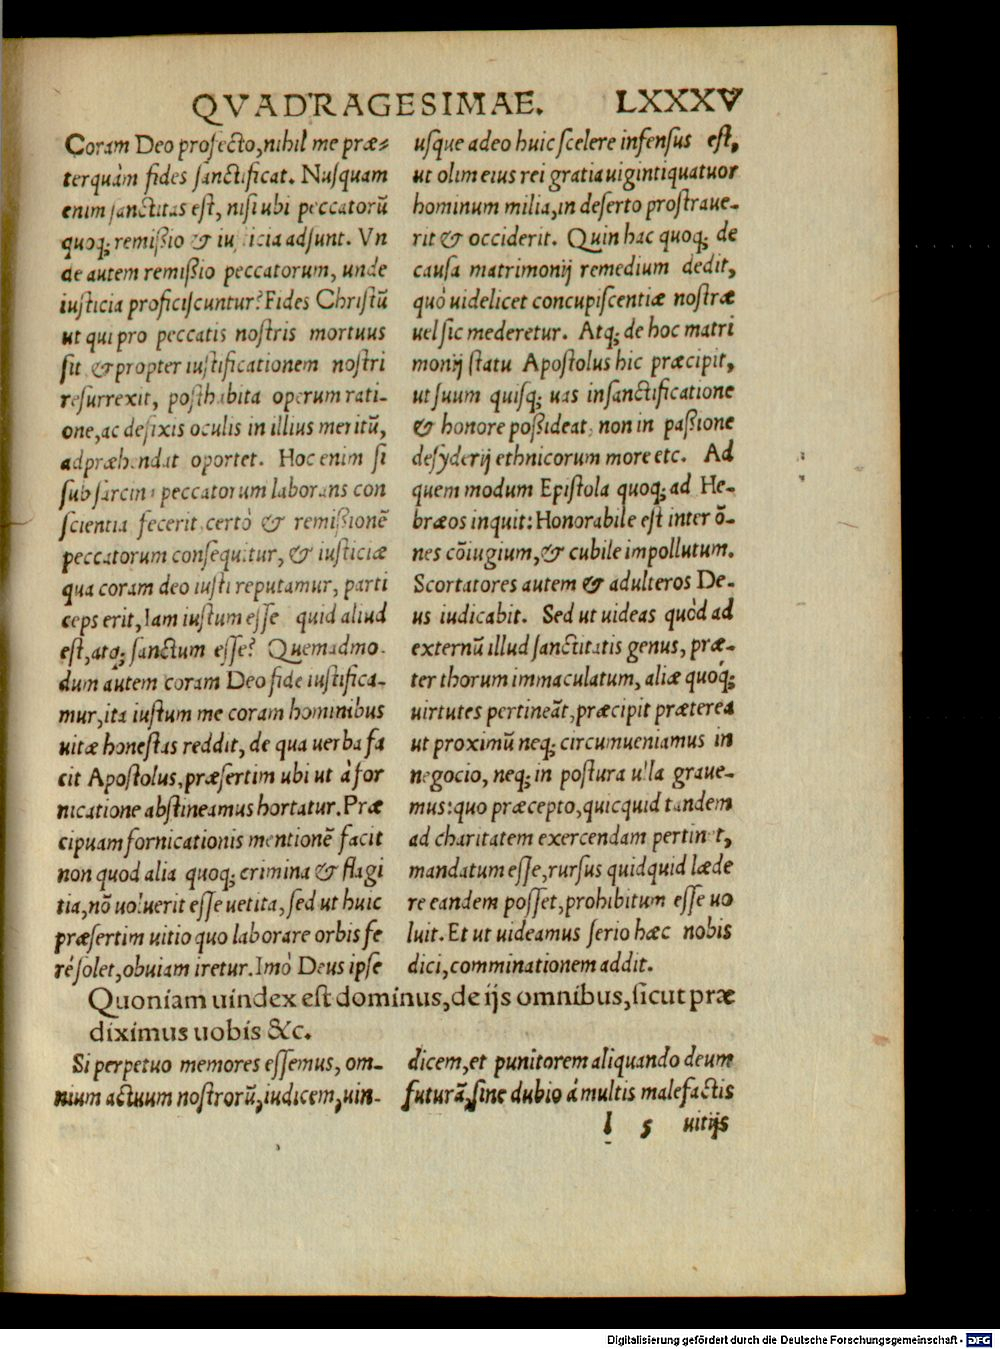 QVADRAGESIMAE. LXXXV
Coram Deo profecto, nihil me præ⸗
terquàm fides sanctificat. Nusquam
enim sanctitas est, nisi ubi peccatorũ
quoq; remißio & iusticia adsunt. Vn
de autem remißio peccatorum, unde
iusticia proficiscuntur? Fides Christũ
ut qui pro peccatis nostris mortuus
sit & propter iustificationem nostri
resurrexit, posthabita operum rati-
one, ac defixis oculis in illius meritũ,
adpræhendat oportet. Hoc enim si
sub sarcina peccatorum laborans con
scientia fecerit, certò & remißionẽ
peccatorum consequitur, & iusticiæ
qua coram deo iusti reputamur, parti
ceps erit, Iam iustum esse quid aliud
est, atq; sanctum esse? Quemadmo-
dum autem coram Deo fide iustifica-
mur, ita iustum me coram hominibus
uitæ honestas reddit, de qua uerba fa
cit Apostolus, præsertim ubi ut à for
nicatione abstineamus hortatur. Præ
cipuam fornicationis mentionẽ facit
non quod alia quoq; crimina & flagi
tia, nõ uoluerit esse uetita, sed ut huic
præsertim uitio quo laborare orbis fe
rè solet, obuiam iretur. Imò Deus ipse
usque adeo huic scelere infensus est,
ut olim eius rei gratia uigintiquatuor
hominum milia, in deserto prostraue-
rit & occiderit. Quin hac quoq; de
causa matrimonij remedium dedit,
quò uidelicet concupiscentiæ nostræ
uel sic mederetur. Atq; de hoc matri
monij statu Apostolus hic præcipit,
ut suum quisq; uas in sanctificatione
& honore poßideat, non in paßione
desyderij ethnicorum more etc. Ad
quem modum Epistola quoq; ad He-
bræos inquit: Honorabile est inter õ-
nes cõiugium, & cubile impollutum.
Scortatores autem & adulteros De-
us iudicabit. Sed ut uideas quòd ad
externũ illud sanctitatis genus, præ-
ter thorum immaculatum, aliæ quoq;
uirtutes pertineãt, præcipit præterea
ut proximũ neq; circumueniamus in
negocio, neq; in postura ulla graue-
mus: quo præcepto, quicquid tandem
ad charitatem exercendam pertinet,
mandatum esse, rursus quidquid læde
re eandem posset, prohibitum esse uo
luit. Et ut uideamus serio hæc nobis
dici, comminationem addit.
Quoniam uindex est dominus, de ijs omnibus, sicut præ
diximus uobis &c.
Si perpetuo memores essemus, om-
nium actuum nostrorũ, iudicem, uin-
dicem, et punitorem aliquando deum
futurã, sine dubio á multis malefactis
l 5 uitijs
Digitalisierung gefördert durch die Deutsche Forschungsgemeinschaft - DFG